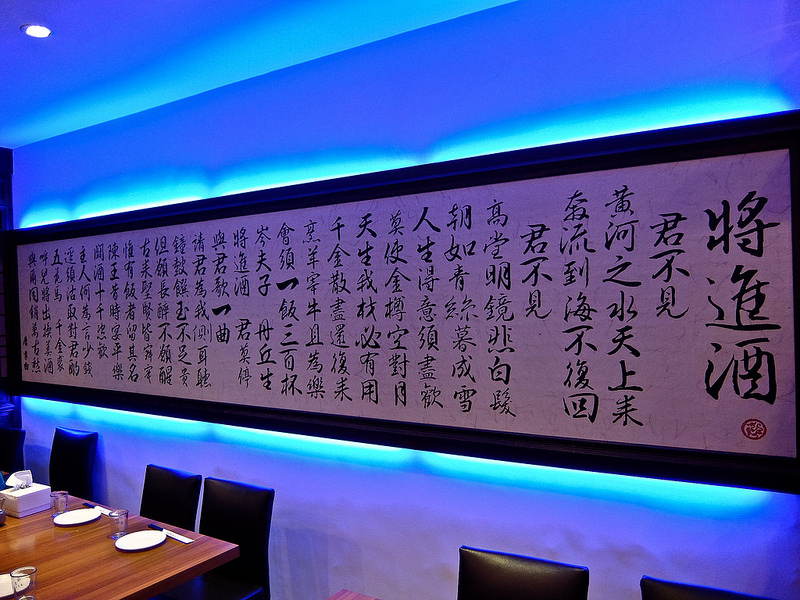 將進酒
君不見
黃河之水天上来
奔流到海不復回
君不見
高堂明鏡悲白髮
朝如青絲暮成雪
人生得意須盡歡
莫使金樽空對月
天生我材必有用
千金散盡還復来
烹羊宰牛且為樂
會須一飲三百杯
岑夫子 丹丘生
將進酒 君莫停
與君歌一曲
請君為我側耳聽
鐘鼓饌玉不足貴
但願長醉不願醒
古来聖賢皆寂寞
惟有飲者留其名
陳王昔時宴平樂
酒十千恣歡
主人何為言少錢
逕須沽取對君酌
五花馬 千金裘
呼兒將出換美酒
與爾同銷萬古愁
唐 李白